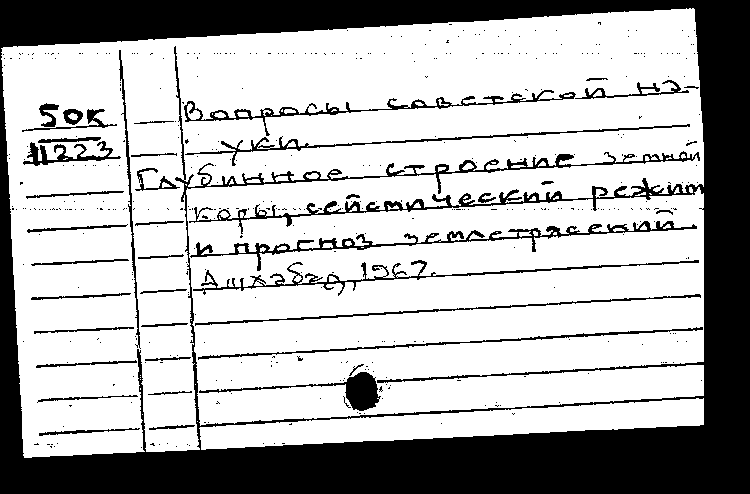 50К
11223
Вопросы советской на-
уки.
Глубинное строение земной
коры, сейсмический режим
и прогноз землетрясений.
Ашхабад, 1967.